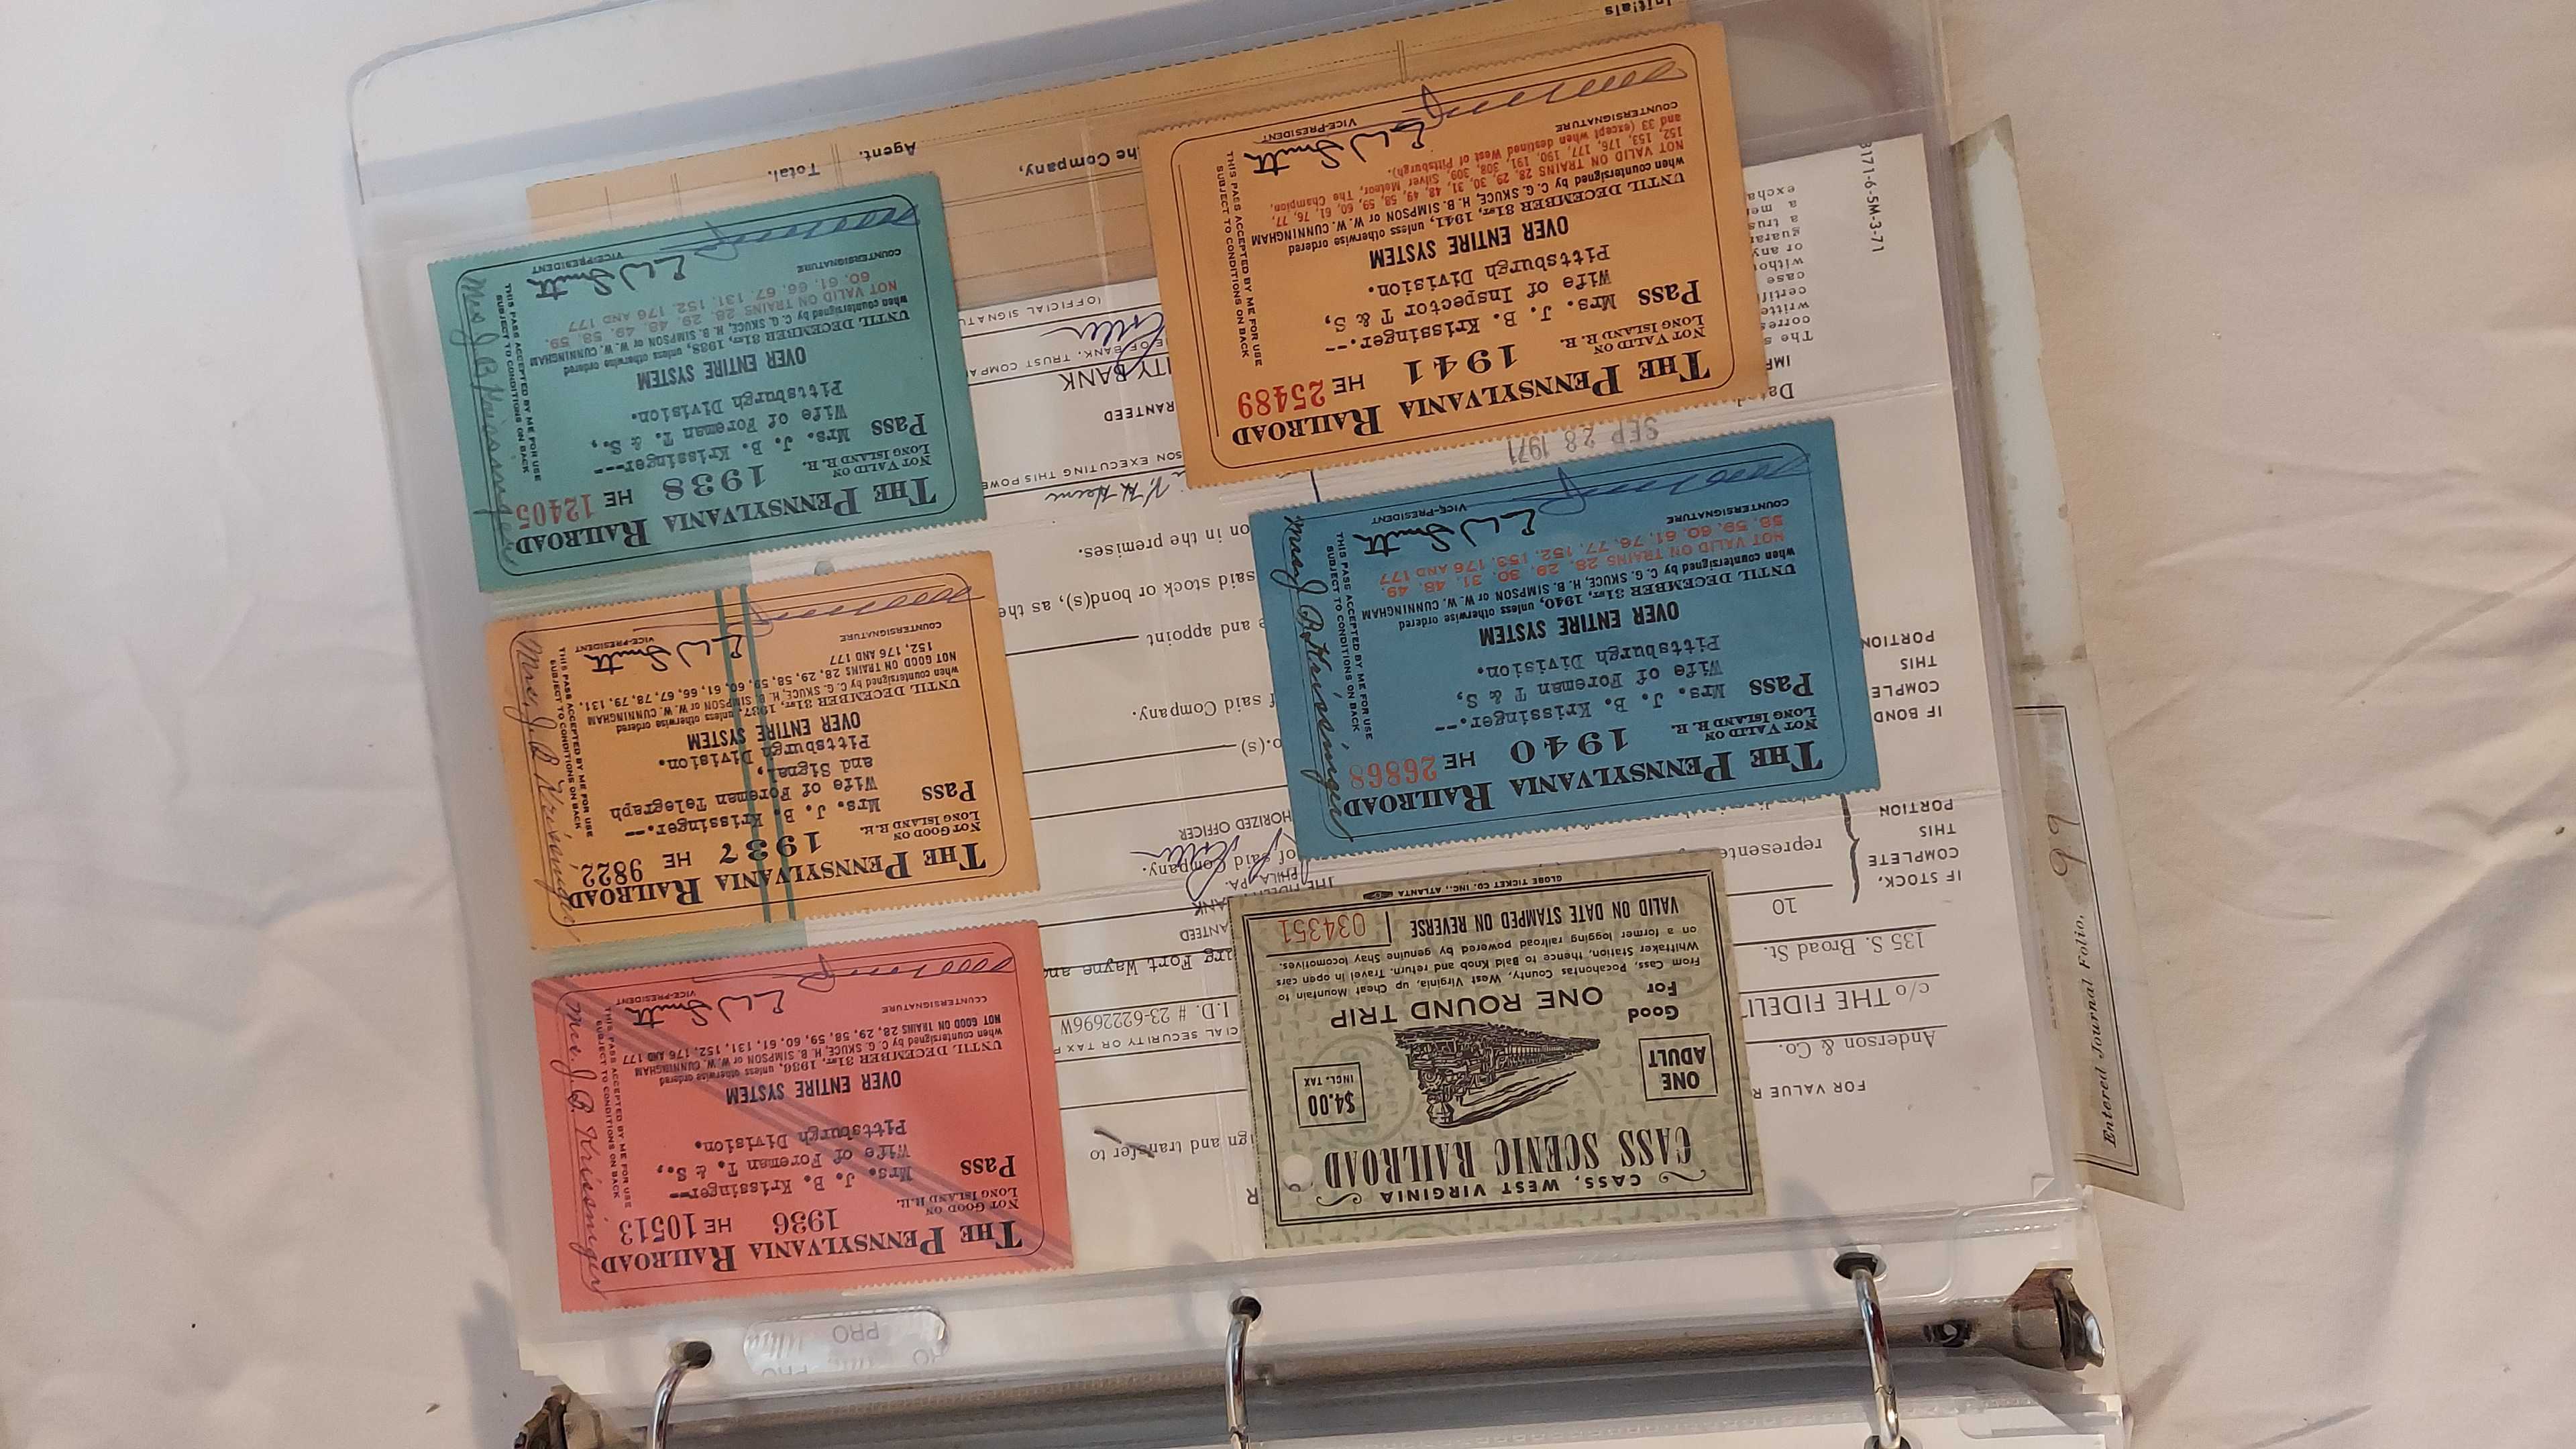 CASS, WEST VIRGINIA
CASS SCENIC RAILROAD
ONE
ADULT
$4.00
INCL. TAX
Good
For
ONE ROUND TRIP
From Cass, Pocahontas County, West Virginia, up Cheat Mountain to
Whittaker Station, thence to Bald Knob and return. Travel in open cars
on a former logging railroad powered by genuine Shay locomotives.
VALID ON DATE STAMPED ON REVERSE
034351
GLOBE TICKET CO. INC., ATLANTA
THE PENNSYLVANIA RAILROAD
1936 HE 10513
NOT GOOD ON
LONG ISLAND R.R.
Pass
Mrs. J. B. Krissinger--
Wife of Foreman T. & S.,
Pittsburgh Division.
OVER ENTIRE SYSTEM
UNTIL DECEMBER 31ST, 1936, unless otherwise ordered
when countersigned by C. G. SKUCE, H. B. SIMPSON or W. W. CUNNINGHAM
NOT GOOD ON TRAINS 28, 29, 58, 59, 60, 61, 131, 152, 176 AND 177
COUNTERSIGNATURE
VICE-PRESIDENT
THIS PASS ACCEPTED BY ME FOR USE
SUBJECT TO CONDITIONS ON BACK
Mrs. J. B. Krissinger
THE PENNSYLVANIA RAILROAD
1940 HE 26868
NOT VALID ON
LONG ISLAND R. R.
Pass
Mrs. J. B. Krissinger.--
Wife of Foreman T & S,
Pittsburgh Division.
OVER ENTIRE SYSTEM
UNTIL DECEMBER 31ST, 1940, unless otherwise ordered
when countersigned by C. G. SKUCE, H. B. SIMPSON or W. W. CUNNINGHAM
NOT VALID ON TRAINS 28, 29, 30, 31, 48, 49,
58, 59, 60, 61, 76, 77, 152, 153, 176 AND 177
COUNTERSIGNATURE
VICE-PRESIDENT
THIS PASS ACCEPTED BY ME FOR USE
SUBJECT TO CONDITIONS ON BACK
Mrs J B Krissinger
THE PENNSYLVANIA RAILROAD
1937 HE 9822
NOT GOOD ON
LONG ISLAND R.R.
Pass
Mrs. J. B. Krissinger.--
Wife of Foreman Telegraph
and Signal,
Pittsburgh Division.
OVER ENTIRE SYSTEM
UNTIL DECEMBER 31ST, 1937, unless otherwise ordered
when countersigned by C. G. SKUCE, H. B. SIMPSON or W. W. CUNNINGHAM
NOT GOOD ON TRAINS 28, 29, 58, 59, 60, 61, 66, 67, 78, 79, 131,
152, 176 AND 177
COUNTERSIGNATURE
VICE-PRESIDENT
THIS PASS ACCEPTED BY ME FOR USE
SUBJECT TO CONDITIONS ON BACK
Mrs. J. B. Krissinger
THE PENNSYLVANIA RAILROAD
1941 HE 25489
NOT VALID ON
LONG ISLAND R. R.
Pass
Mrs. J. B. Krissinger.--
Wife of Inspector T & S,
Pittsburgh Division.
OVER ENTIRE SYSTEM
UNTIL DECEMBER 31ST, 1941, unless otherwise ordered
when countersigned by C. G. SKUCE, H. B. SIMPSON or W. W. CUNNINGHAM
NOT VALID ON TRAINS 28, 29, 30, 31, 48, 49, 58, 59, 60, 61, 76, 77,
152, 153, 176, 177, 190, 191, 308, 309, Silver Meteor, The Champion,
and 33 (except when destined West of Pittsburgh).
COUNTERSIGNATURE
VICE-PRESIDENT
THIS PASS ACCEPTED BY ME FOR USE
SUBJECT TO CONDITIONS ON BACK
THE PENNSYLVANIA RAILROAD
1938 HE 12405
NOT VALID ON
LONG ISLAND R.R.
Pass
Mrs. J. B. Krissinger.---
Wife of Foreman T. & S.,
Pittsburgh Division.
OVER ENTIRE SYSTEM
UNTIL DECEMBER 31ST, 1938, unless otherwise ordered
when countersigned by C. G. SKUCE, H. B. SIMPSON or W. W. CUNNINGHAM
NOT VALID ON TRAINS 28, 29, 48, 49, 58, 59,
60, 61, 66, 67, 131, 152, 176 AND 177
COUNTERSIGNATURE
VICE-PRESIDENT
THIS PASS ACCEPTED BY ME FOR USE
SUBJECT TO CONDITIONS ON BACK
Mrs J B Krissinger
FOR VALUE R
ign and transfer to
Anderson & Co.
CIAL SECURITY OR TAX
c/o THE FIDELI
I.D. # 23-6222696W
135 S. Broad St.
urg Fort Wayne an
10
IF STOCK,
COMPLETE
THIS
PORTION
represente
of said Company.
HORIZED OFFICER
IF BOND
COMPLE
THIS
PORTION
o.(s)
f said Company.
e and appoint
said stock or bond(s), as the
on in the premises.
SEP 28 1971
SON EXECUTING THIS POWE
RANTEED
ITY BANK
E OF BANK, TRUST COMPA
(OFFICIAL SIGNATU
8171-6-5M-3-71
Entered Journal Folio, 99
he Company,
Agent.
Total.
Initials
PRO